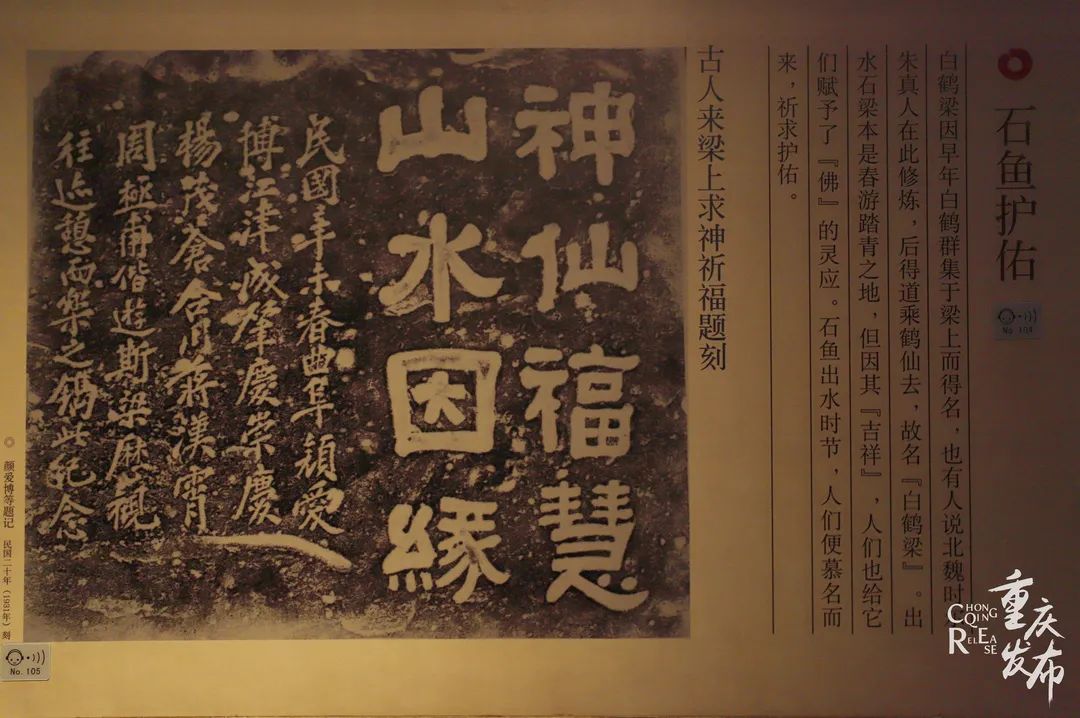 石鱼护佑
No.104
白鹤梁因早年白鹤群集于梁上而得名，也有人说北魏时
朱真人在此修炼，后得道乘鹤仙去，故名『白鹤梁』。出
水石梁本是春游踏青之地，但因其『吉祥』，人们也给它
们赋予了『佛』的灵应。石鱼出水时节，人们便慕名而
来，祈求护佑。
古人来梁上求神祈福题刻
神仙福慧
山水因緣
民國辛未春曲阜顏愛
博江津成肇慶崇慶
楊茂蒼合川蔣漢霄
周極甫偕遊斯梁歷觀
往迹憩而樂之鐫此紀念
颜爱博等题记 民国二十年（1931年）刻
No. 105
CHONGQING RELEASE
重庆发布